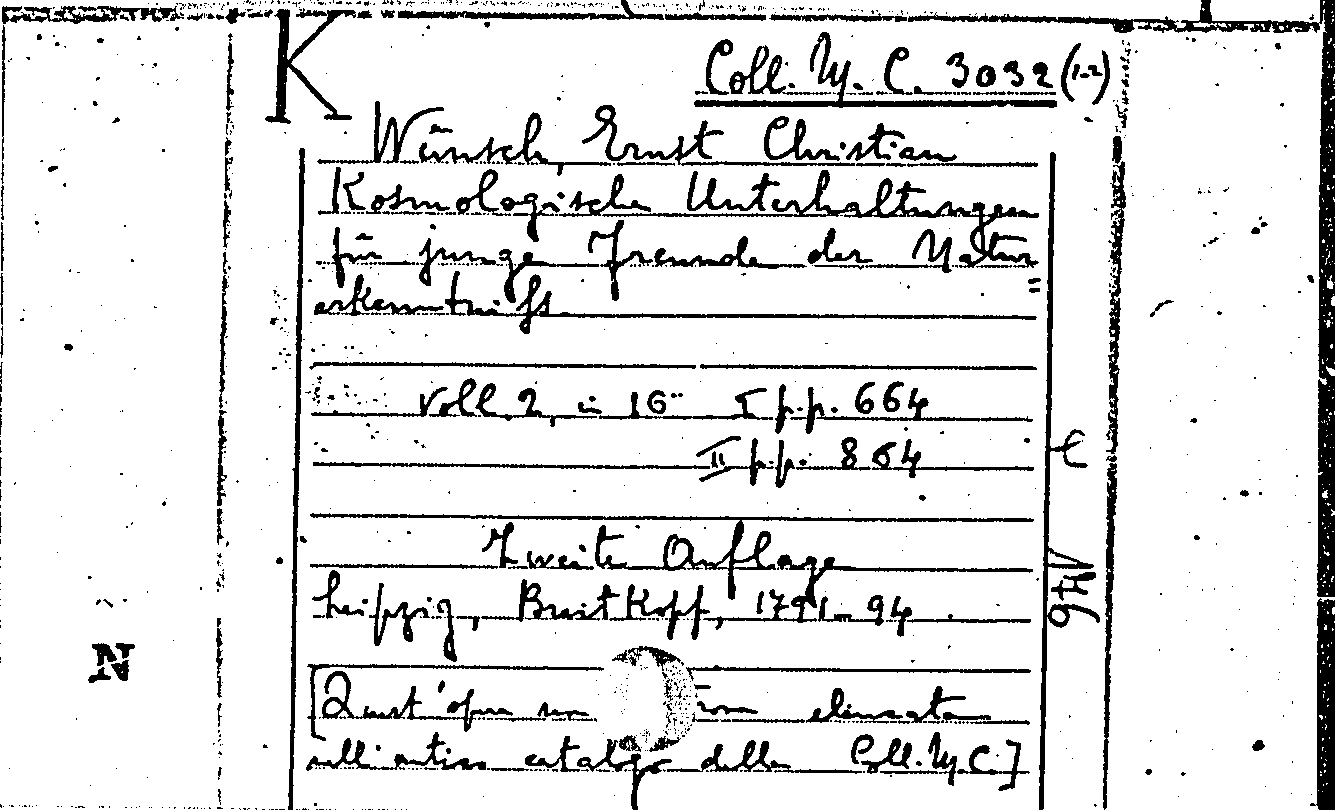 K
Coll. M. C. 3032 (1-2)
Wünsch, Ernst Christian
Kosmologische Unterhaltungen
für junge Freunde der Natur=
erkenntniß.
voll. 2, in 16° I p.p. 664
II p.p. 864
e
Zweite Auflage
Leipzig, Breitkopf, 1791-94
N
[Quest'opera non elencata
nell'antico catalogo della Coll. M.C.]